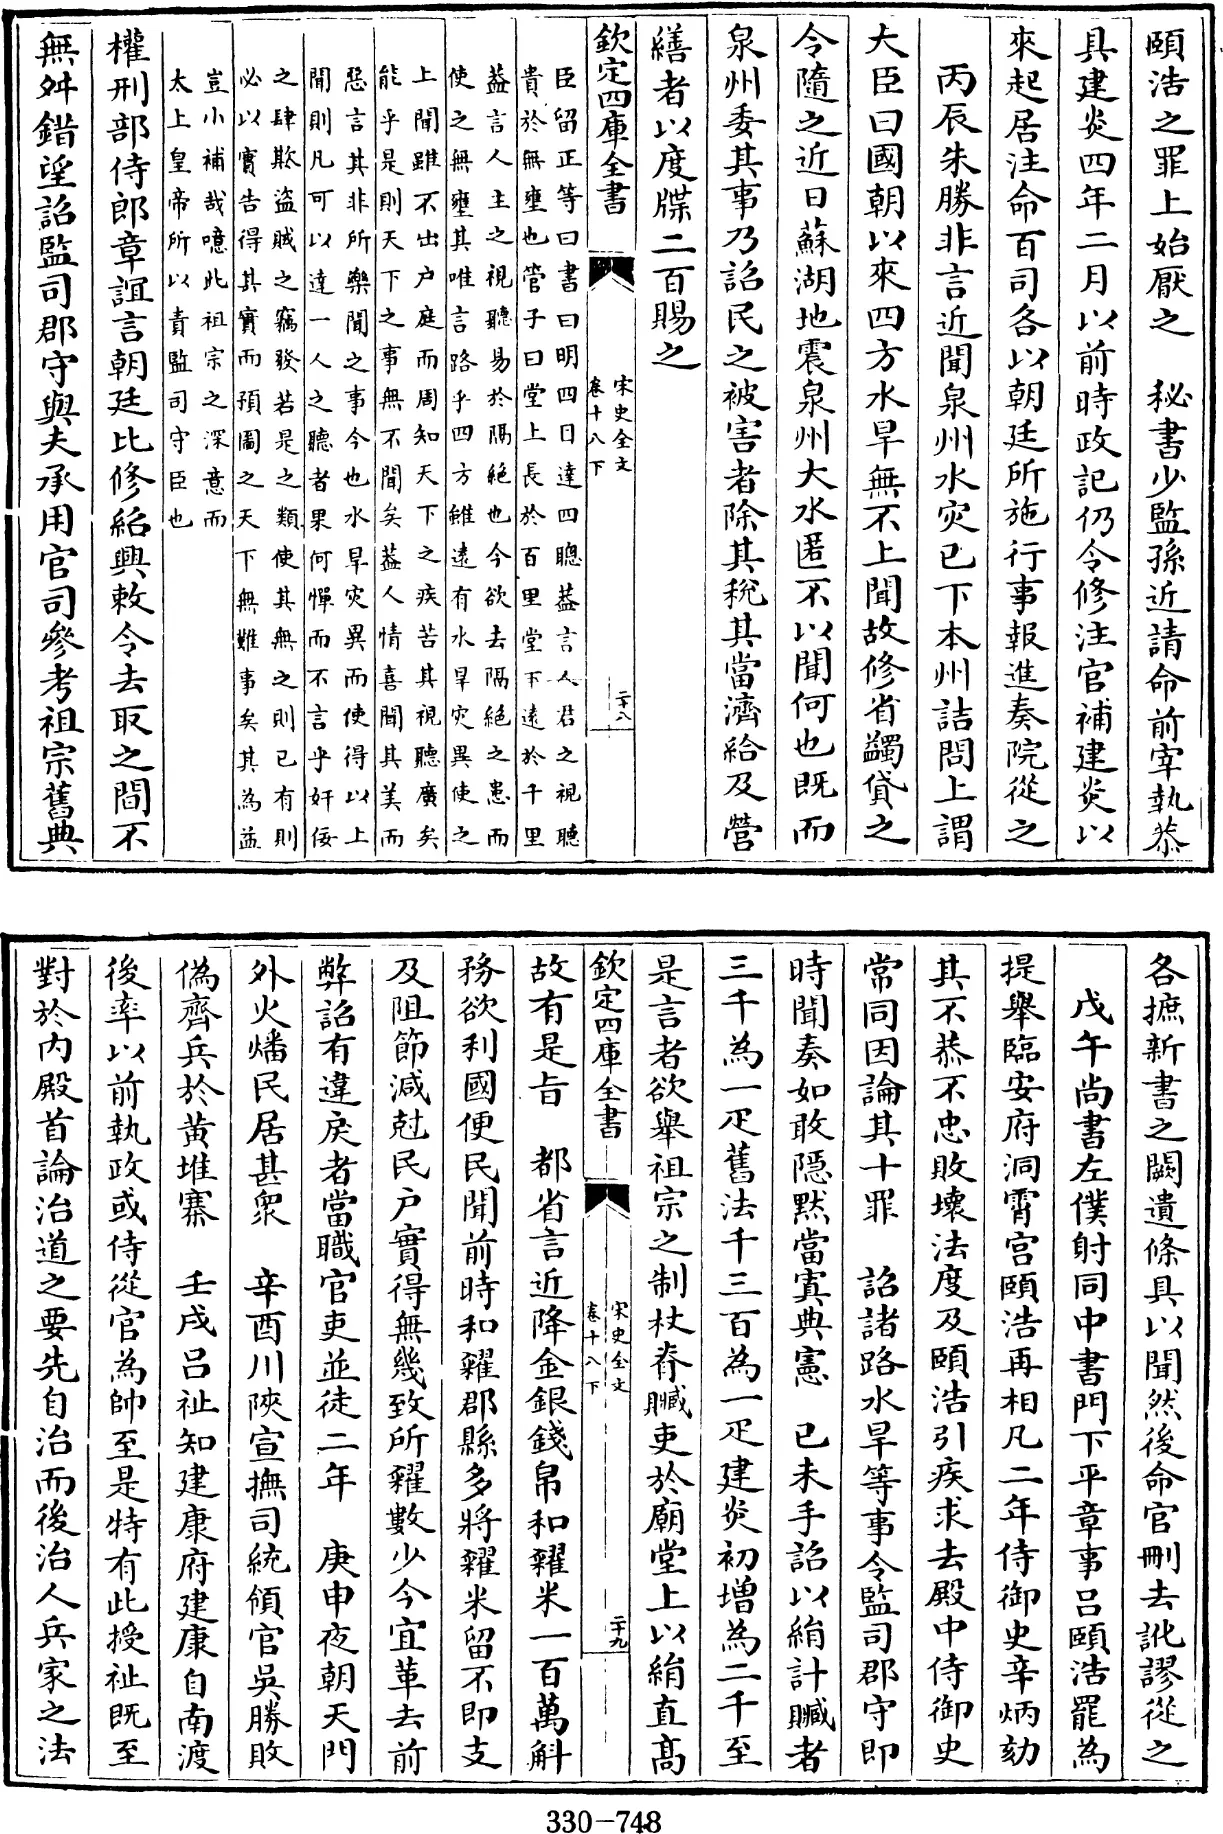 頤浩之罪上始厭之　秘書少監孫近請命前宰執恭
具建炎四年二月以前時政記仍令修注官補建炎以
來起居注命百司各以朝廷所施行事報進奏院從之
丙辰朱勝非言近聞泉州水災已下本州詰問上謂
大臣曰國朝以來四方水旱無不上聞故修省蠲貸之
令隨之近日蘇湖地震泉州大水匿不以聞何也既而
泉州委其事乃詔民之被害者除其稅其當濟給及營
繕者以度牒二百賜之
欽定四庫全書
宋史全文
卷十八下
二十八
臣留正等曰書曰明四目達四聰葢言人君之視聽
貴於無壅也管子曰堂上長於百里堂下遠於千里
葢言人主之視聽易於隔絶也今欲去隔絶之患而
使之無壅其唯言路乎四方雖遠有水旱災異使之
上聞雖不出户庭而周知天下之疾苦其視聽廣矣
能乎是則天下之事無不聞矣葢人情喜聞其美而
惡言其非所樂聞之事今也水旱災異而使得以上
聞則凡可以達一人之聽者果何憚而不言乎奸佞
之肆欺盜賊之竊發若是之類使其無之則已有則
必以實告得其實而預圖之天下無難事矣其為益
豈小補哉噫此祖宗之深意而
太上皇帝所以責監司守臣也
權刑部侍郎章誼言朝廷比修紹興敕令去取之間不
無舛錯望詔監司郡守與夫承用官司參考祖宗舊典
各摭新書之闕遺條具以聞然後命官刪去訛謬從之
戊午尚書左僕射同中書門下平章事吕頤浩罷為
提舉臨安府洞霄宮頤浩再相凡二年侍御史辛炳劾
其不恭不忠敗壞法度及頤浩引疾求去殿中侍御史
常同因論其十罪　詔諸路水旱等事令監司郡守即
時聞奏如敢隱默當寘典憲　已未手詔以絹計贓者
三千為一疋舊法千三百為一疋建炎初增為二千至
是言者欲舉祖宗之制杖脊贓吏於廟堂上以絹直髙
欽定四庫全書
宋史全文
卷十八下
二十九
故有是旨　都省言近降金銀錢帛和糴米一百萬斛
務欲利國便民聞前時和糴郡縣多將糴米留不即支
及阻節減尅民户實得無幾致所糴數少今宜革去前
弊詔有違戾者當職官吏並徒二年　庚申夜朝天門
外火燔民居甚衆　辛酉川陜宣撫司統領官吳勝敗
偽齊兵於黄堆寨　壬戌吕祉知建康府建康自南渡
後率以前執政或侍從官為帥至是特有此授祉既至
對於内殿首論治道之要先自治而後治人兵家之法
330-748